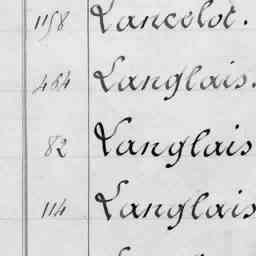 1158 Lancelot.
464 Langlais.
82 Langlais
114 Langlais